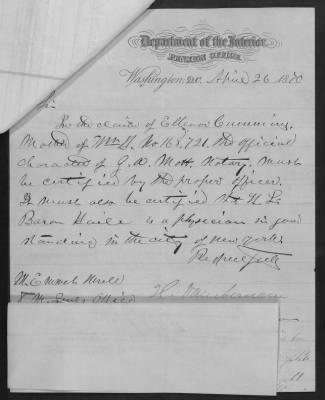 Department of the Interior,
PENSION OFFICE,
Washington, D.C. April 26 1880
Sir:
In the claim of Ellenor Cumming,
Mother of Wm H. No 168,721, the official
character of G. W. Mott, Notary, must
be certified by the proper officer.
It must also be certified that H L.
Baron Haile is a physician in good
standing in the city of new york.
Respectfully
M. Emmet